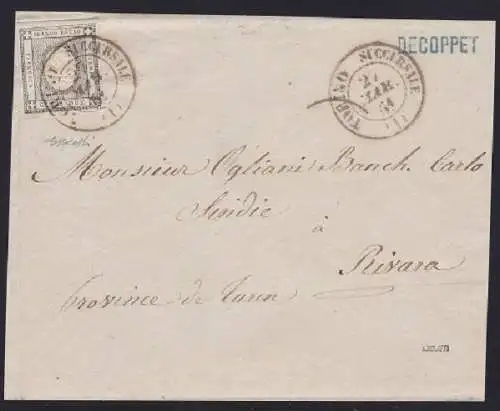 DECOPPET
TORINO SUCCURSALE
TORINO SUCCURSALE
27
MAR.
61
(1)
Monsieur Ogliani Banch. Carlo
Sindic
à
Rivara
Province de Turin